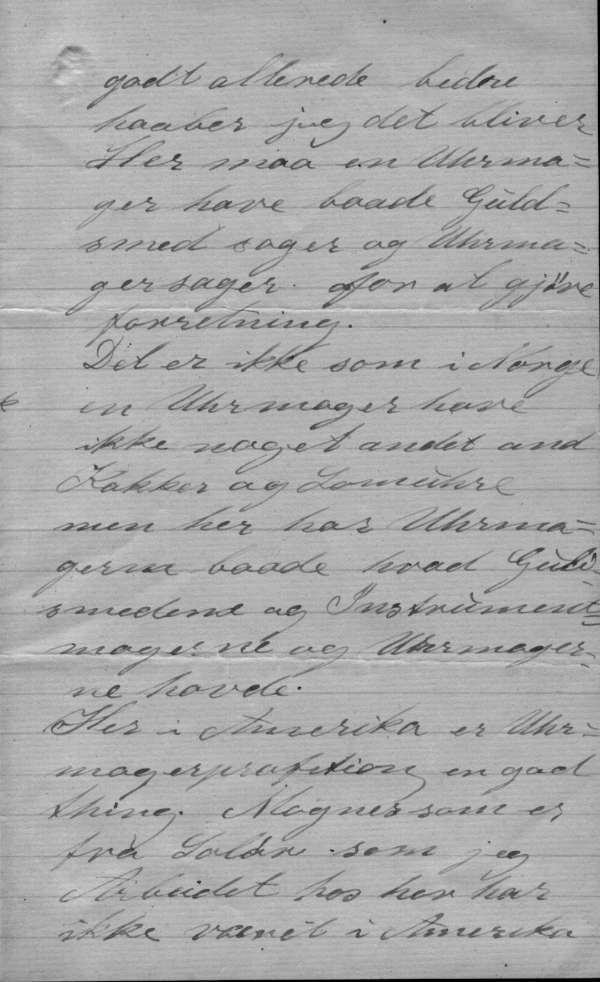 godt allerede bedre
haaber jeg det bliver
Her maa en Uhrma=
ger have baade Guld=
smed sager og Uhrma=
gersager. for at gjøre
forretning.
Det er ikke som i Norge
en Uhrmager have
ikke noget andet and
Kakker og Lomuhre
men her har Uhrma=
gerne baade hvad Guld=
smedene og Instrument=
magerne og Uhrmager=
ne havde.
Her i Amerika er Uhr=
magerprofetion en god
thing. Magnes som er
fra Solør som jeg
Arbeidet hos her har
ikke været i Amerika